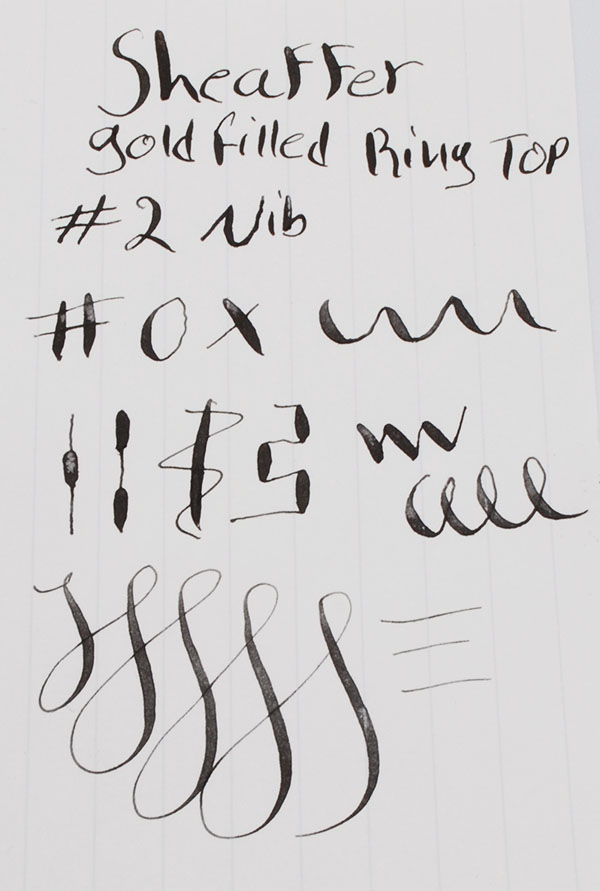 Sheaffer
gold filled Ring Top
#2 Nib
# O X